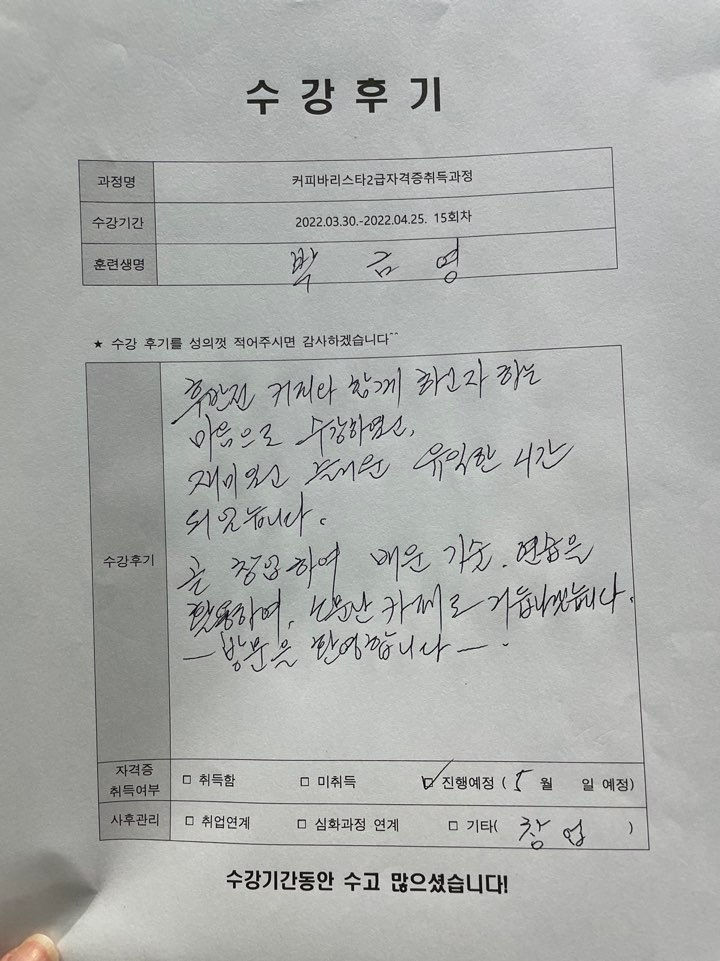 수강후기
과정명 커피바리스타2급자격증취득과정
수강기간 2022.03.30.-2022.04.25. 15회차
훈련생명 박금영
★ 수강 후기를 성의껏 적어주시면 감사하겠습니다^^
수강후기
커피와 함께 하고자 하는
마음으로 수강하였고,
재미있고 즐거운 유익한 시간
되었습니다.
곧 창업하여 배운 기술, 연습을
활용하여, 카페로 거듭나겠습니다.
- 방문을 환영합니다 -.
자격증 취득여부 □ 취득함 □ 미취득 ☑ 진행예정 ( 5 월 일 예정)
사후관리 □ 취업연계 □ 심화과정 연계 □ 기타( 창업 )
수강기간동안 수고 많으셨습니다!